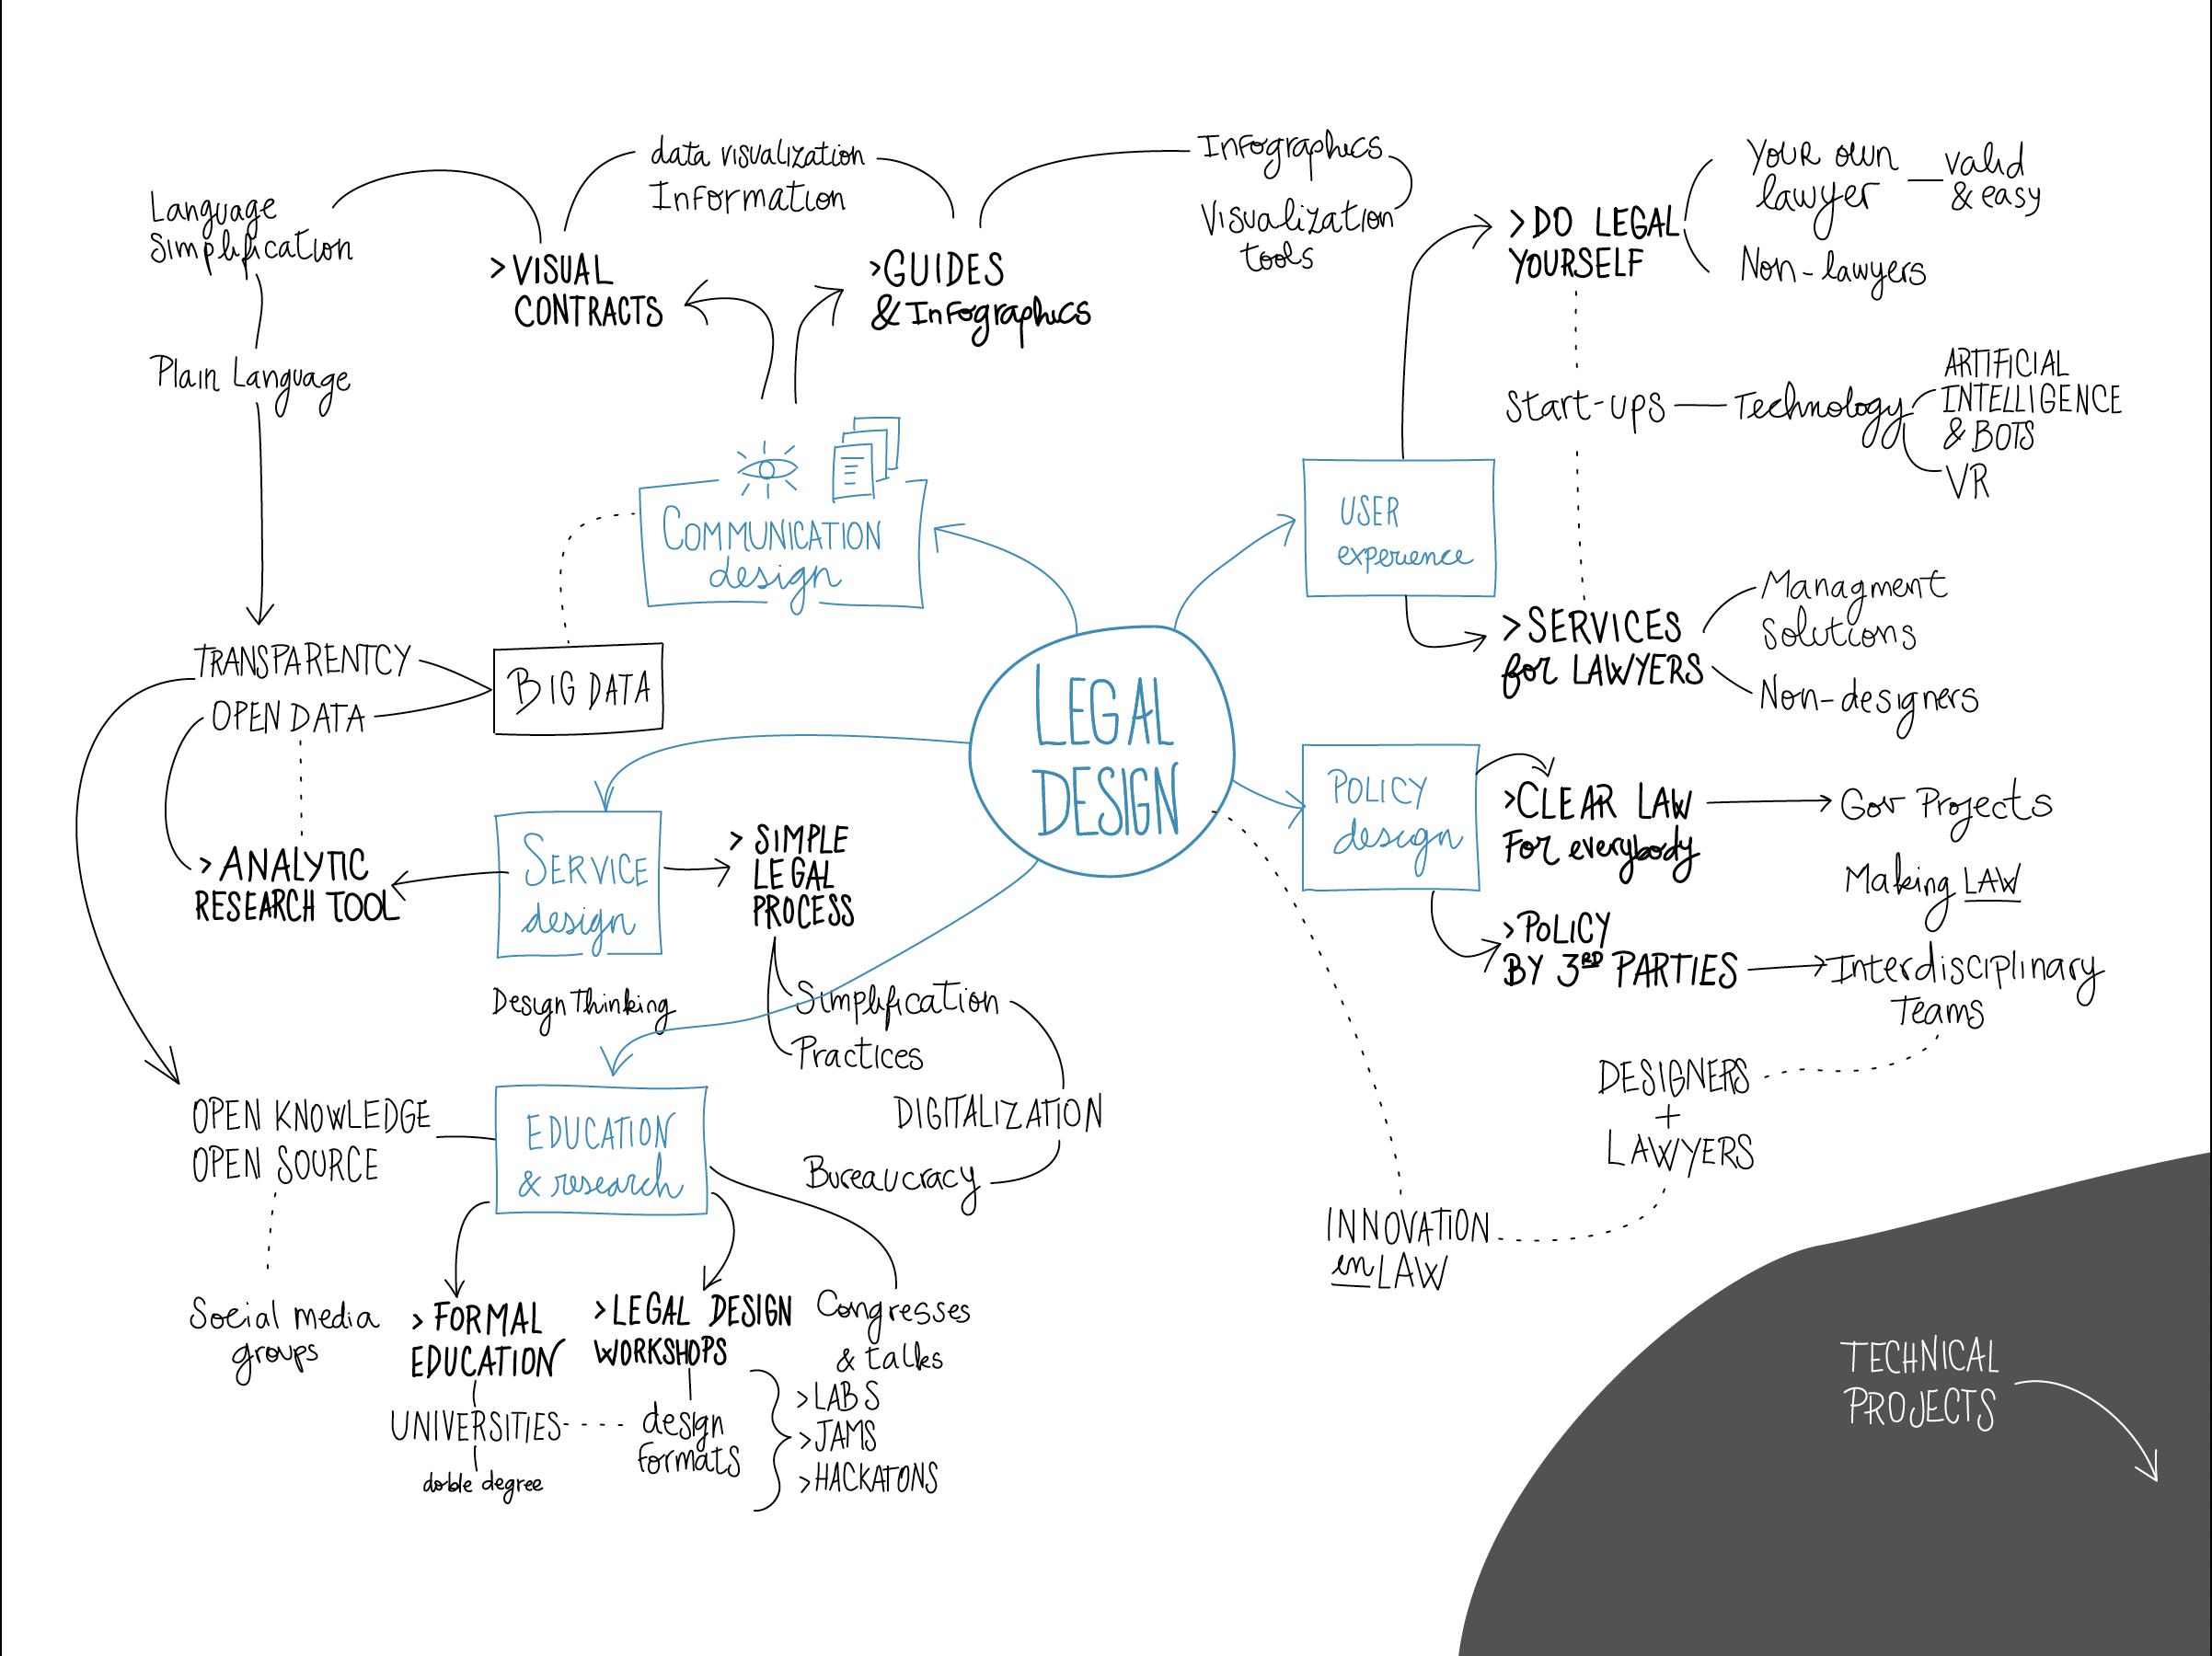 Language
Simplification
Plain Language
data visualization
Information
> VISUAL
CONTRACTS
> GUIDES
& Infographics
Infographics
Visualization
tools
> DO LEGAL
YOURSELF
YOUR OWN
lawyer
valid
& easy
Non-lawyers
Start-ups
Technology
ARTIFICIAL
INTELLIGENCE
& BOTS
VR
COMMUNICATION
design
USER
experience
> SERVICES
for LAWYERS
Managment
Solutions
Non-designers
TRANSPARENTCY
OPEN DATA
BIG DATA
LEGAL
DESIGN
POLICY
design
> CLEAR LAW
For everybody
Gov Projects
Making LAW
> POLICY
BY 3RD PARTIES
Interdisciplinary
Teams
DESIGNERS
+
LAWYERS
INNOVATION
in LAW
> ANALYTIC
RESEARCH TOOL
SERVICE
design
Design Thinking
> SIMPLE
LEGAL
PROCESS
Simplification
Practices
DIGITALIZATION
Bureaucracy
OPEN KNOWLEDGE
OPEN SOURCE
EDUCATION
& research
Social media
groups
> FORMAL
EDUCATION
UNIVERSITIES
doble degree
> LEGAL DESIGN
WORKSHOPS
design
formats
Congresses
& talks
> LABS
> JAMS
> HACKATONS
TECHNICAL
PROJECTS